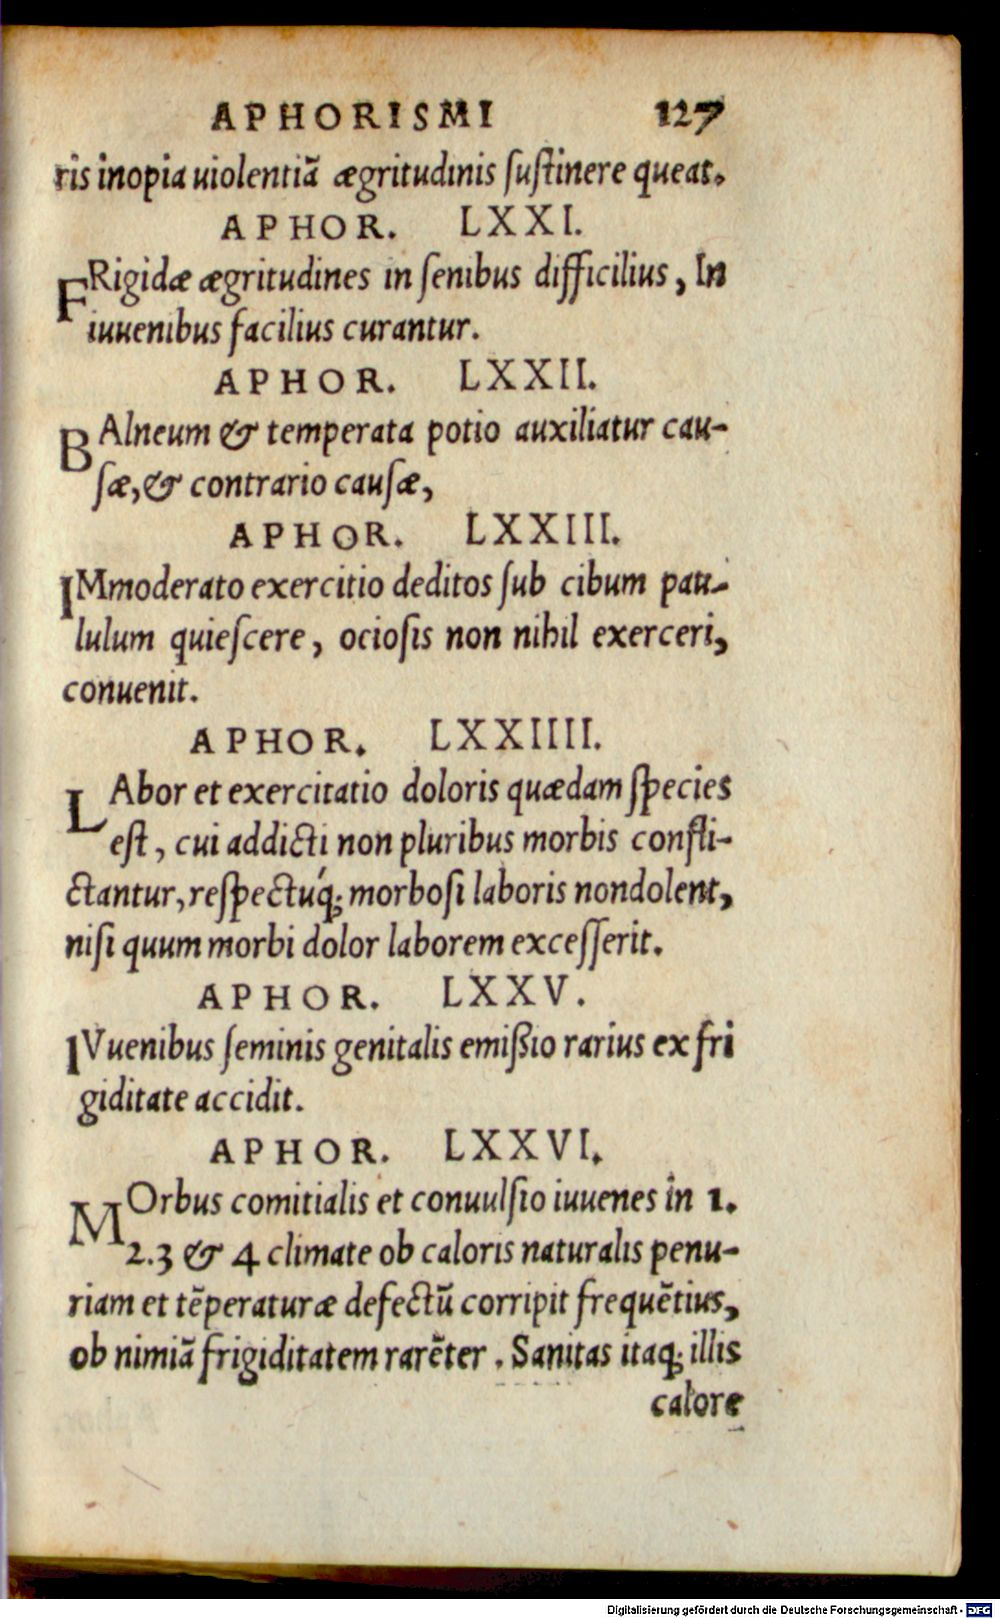 APHORISMI 127
ris inopia uiolentiã ægritudinis ſuſtinere queat.
APHOR. LXXI.
FRigidæ ægritudines in ſenibus difficilius, In
iuuenibus facilius curantur.
APHOR. LXXII.
BAlneum & temperata potio auxiliatur cau-
ſæ, & contrario cauſæ,
APHOR. LXXIII.
IMmoderato exercitio deditos ſub cibum pau-
lulum quieſcere, ocioſis non nihil exerceri,
conuenit.
APHOR. LXXIIII.
LAbor et exercitatio doloris quædam ſpecies
eſt, cui addicti non pluribus morbis confli-
ctantur, reſpectuq́; morboſi laboris nondolent,
niſi quum morbi dolor laborem exceſſerit.
APHOR. LXXV.
IVuenibus ſeminis genitalis emißio rarius ex fri
giditate accidit.
APHOR. LXXVI.
MOrbus comitialis et conuulſio iuuenes in 1.
2.3 & 4 climate ob caloris naturalis penu-
riam et tẽperaturæ defectũ corripit frequẽtius,
ob nimiã frigiditatem rarẽter. Sanitas itaq; illis
calore
Digitalisierung gefördert durch die Deutsche Forschungsgemeinschaft - DFG